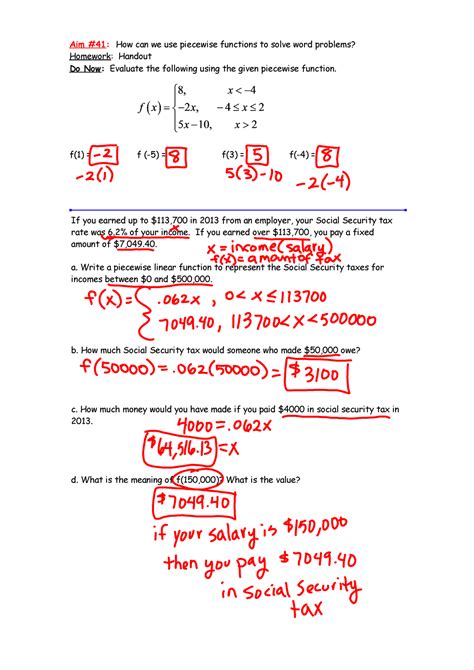 Aim #41: How can we use piecewise functions to solve word problems?
Homework: Handout
Do Now: Evaluate the following using the given piecewise function.
8, x < −4
f(x) = −2x, −4 ≤ x ≤ 2
5x − 10, x > 2
f(1) = -2 f (-5) = 8 f(3) = 5 f(-4) = 8
-2(1) 5(3)-10 -2(-4)
If you earned up to $113,700 in 2013 from an employer, your Social Security tax
rate was 6.2% of your income. If you earned over $113,700, you pay a fixed
x
amount of $7,049.40.
x = income(salary)
f(x) = amount of tax
a. Write a piecewise linear function to represent the Social Security taxes for
incomes between $0 and $500,000.
f(x) = .062x , 0 < x ≤ 113700
7049.40, 113700 < x < 500000
b. How much Social Security tax would someone who made $50,000 owe?
f(50000) = .062(50000) = $3100
c. How much money would you have made if you paid $4000 in social security tax in
2013.
4000 = .062x
$64,516.13 = x
d. What is the meaning of f(150,000)? What is the value?
$7049.40
if your salary is $150,000
then you pay $7049.40
in social security
tax